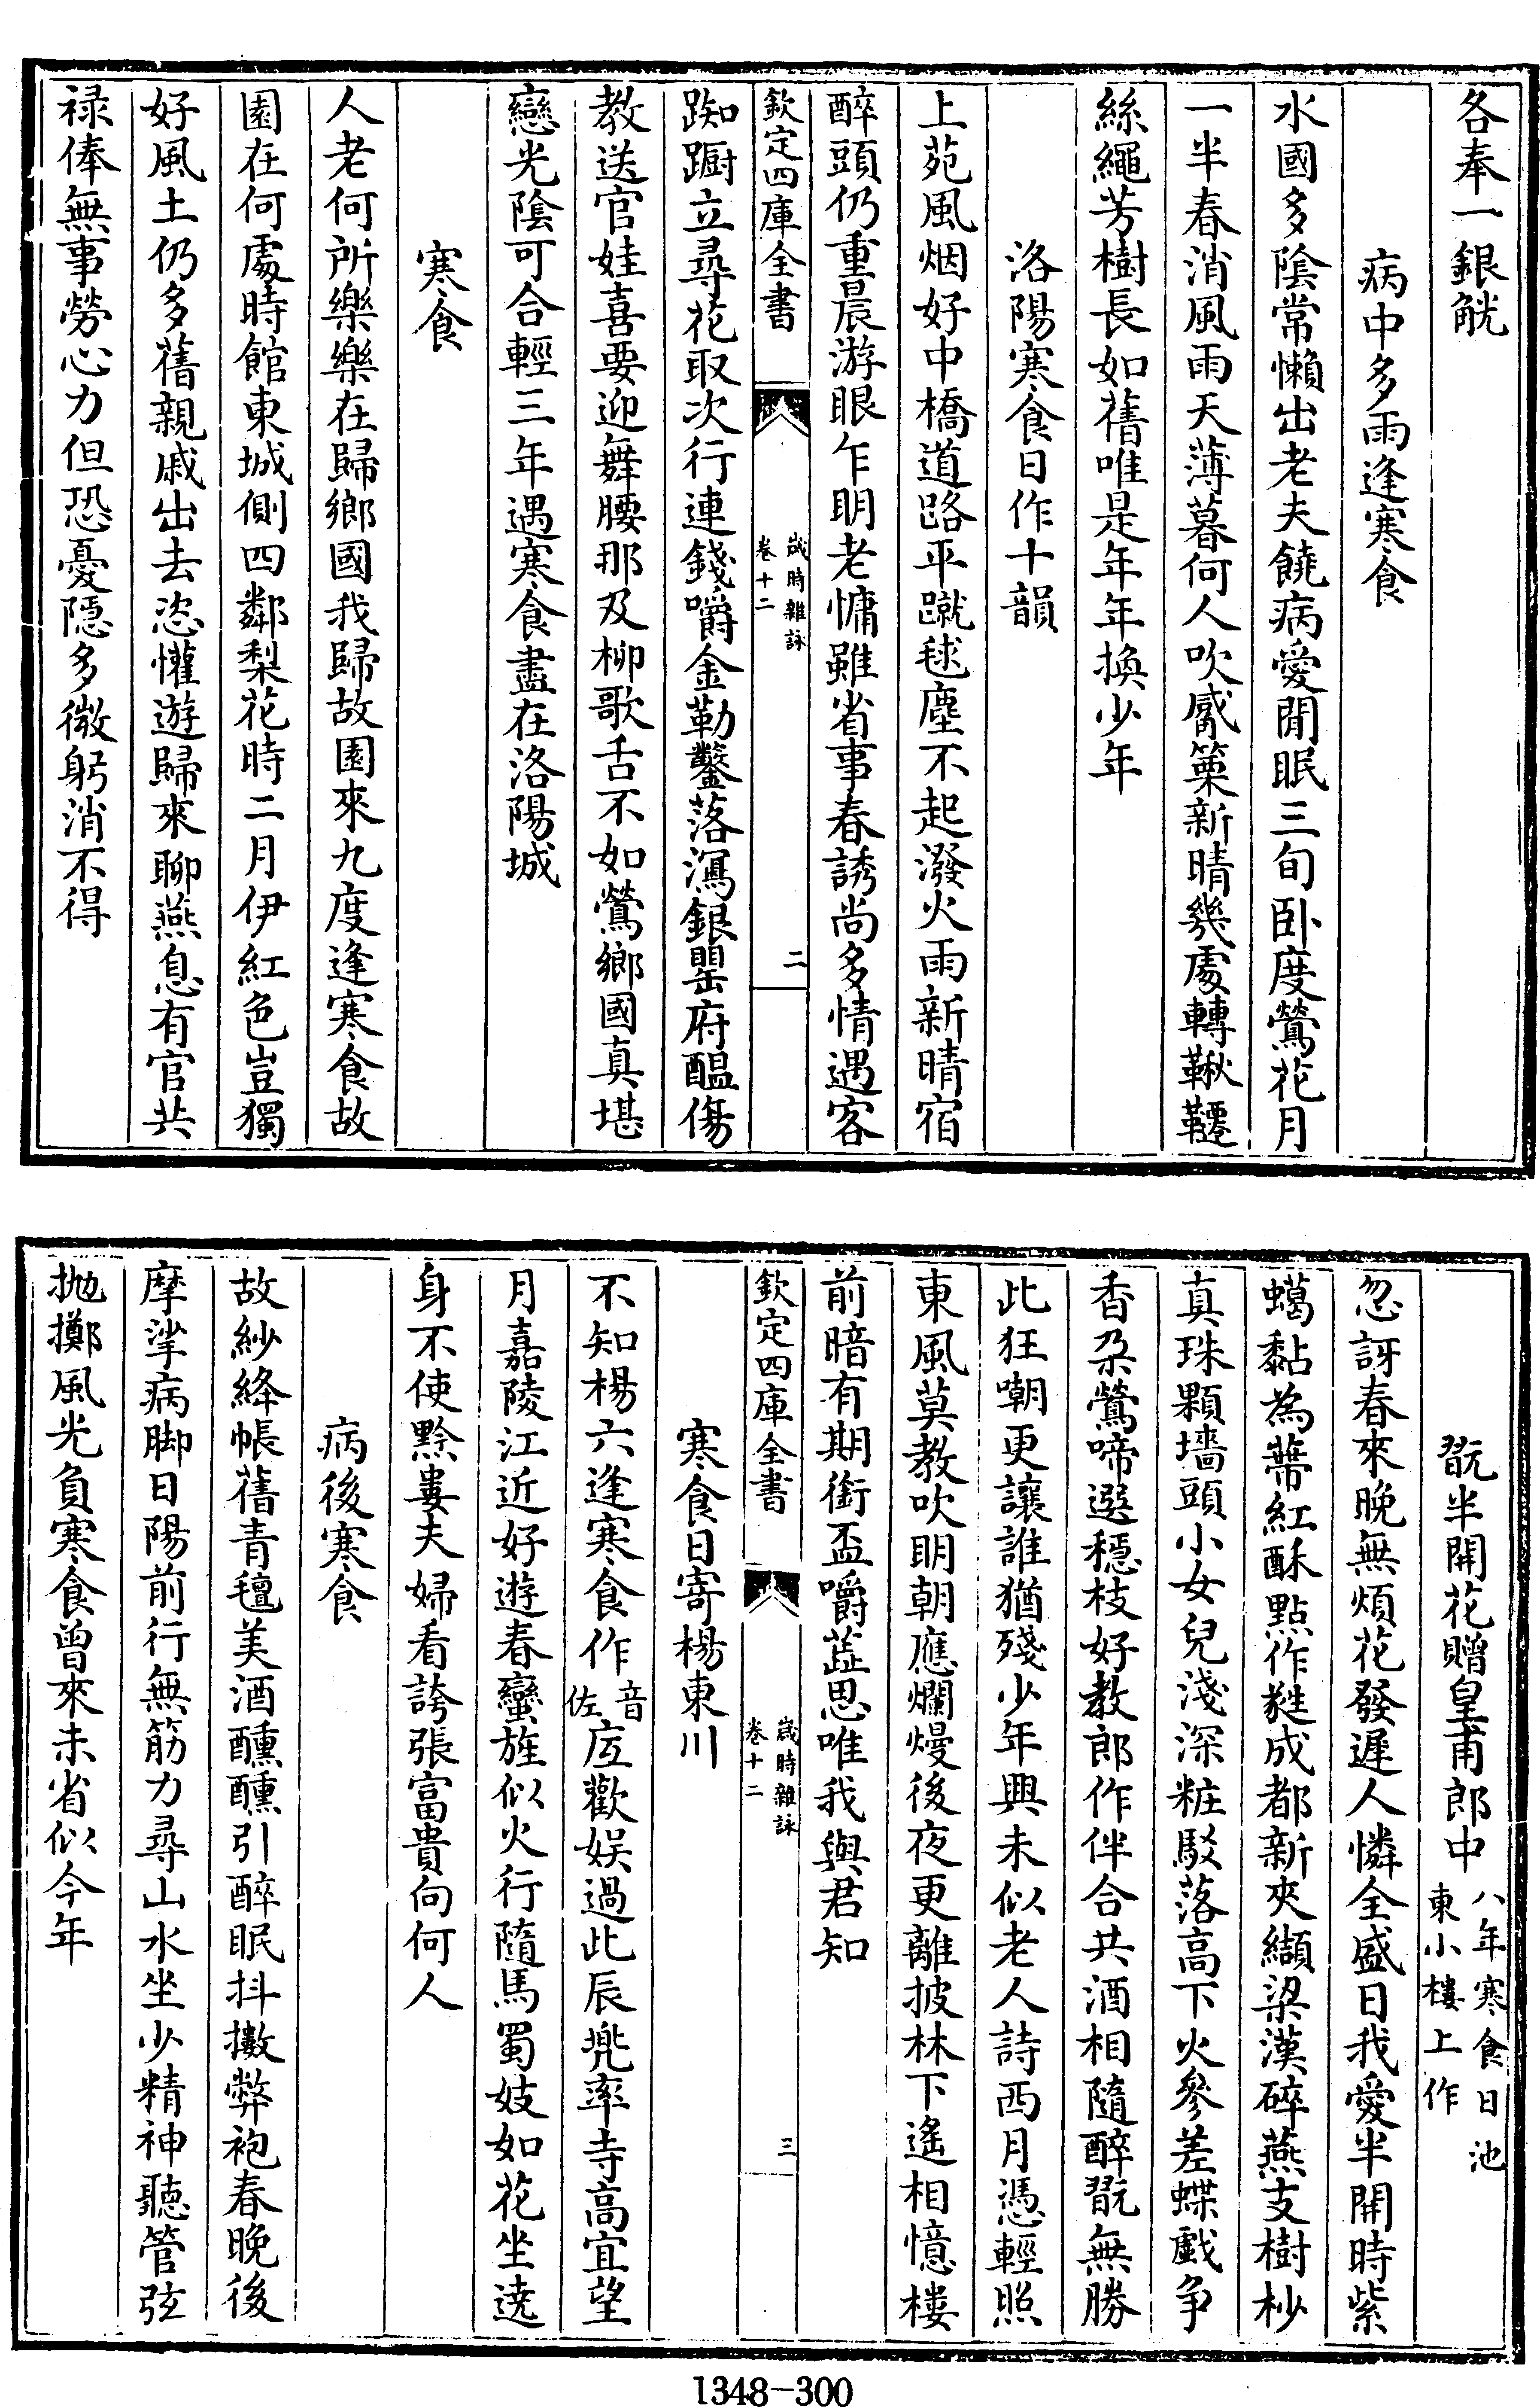 各奉一銀觥
病中多雨逢寒食
水國多陰常懶出老夫饒病愛閒眠三旬卧度鶯花月
一半春消風雨天薄暮何人吹觱篥新晴幾處轉鞦韆
絲繩芳樹長如舊唯是年年換少年
洛陽寒食日作十韻
上苑風烟好中橋道路平蹴毬塵不起潑火雨新晴宿
醉頭仍重晨游眼乍明老慵雖省事春誘尚多情遇客
欽定四庫全書
歲時雜詠
卷十二
二
踟蹰立尋花取次行連錢嚼金勒鑿落瀉銀罌府醖傷
教送官娃喜要迎舞腰那及柳歌舌不如鶯鄉國真堪
戀光陰可合輕三年遇寒食盡在洛陽城
寒食
人老何所樂樂在歸鄉國我歸故園來九度逢寒食故
園在何處時館東城側四鄰梨花時二月伊紅色豈獨
好風土仍多舊親戚出去恣懽遊歸來聊燕息有官共
禄俸無事勞心力但恐憂隱多微躬消不得
翫半開花贈皇甫郎中
八年寒食日池
東小樓上作
忽訝春來晚無煩花發遲人憐全盛日我愛半開時紫
蠟黏為蔕紅酥點作蕤成都新夾纈梁漢碎燕支樹杪
真珠顆墻頭小女兒淺深粧駁落高下火參差蝶戲争
香朶鶯啼選穩枝好教郎作伴合共酒相隨醉翫無勝
此狂嘲更讓誰猶殘少年興未似老人詩西月憑輕照
東風莫教吹明朝應爛熳後夜更離披林下遙相憶樓
前暗有期銜盃嚼蕋思唯我與君知
欽定四庫全書
歲時雜詠
卷十二
三
寒食日寄楊東川
不知楊六逢寒食作
音
佐
底歡娱過此辰兠率寺高宜望
月嘉陵江近好遊春蠻旌似火行隨馬蜀妓如花坐遶
身不使黔婁夫婦看誇張富貴向何人
病後寒食
故紗絳帳舊青氊美酒醺醺引醉眠抖擻弊袍春晚後
摩挲病脚日陽前行無筋力尋山水坐少精神聽管弦
抛擲風光負寒食曾來未省似今年
1348-300